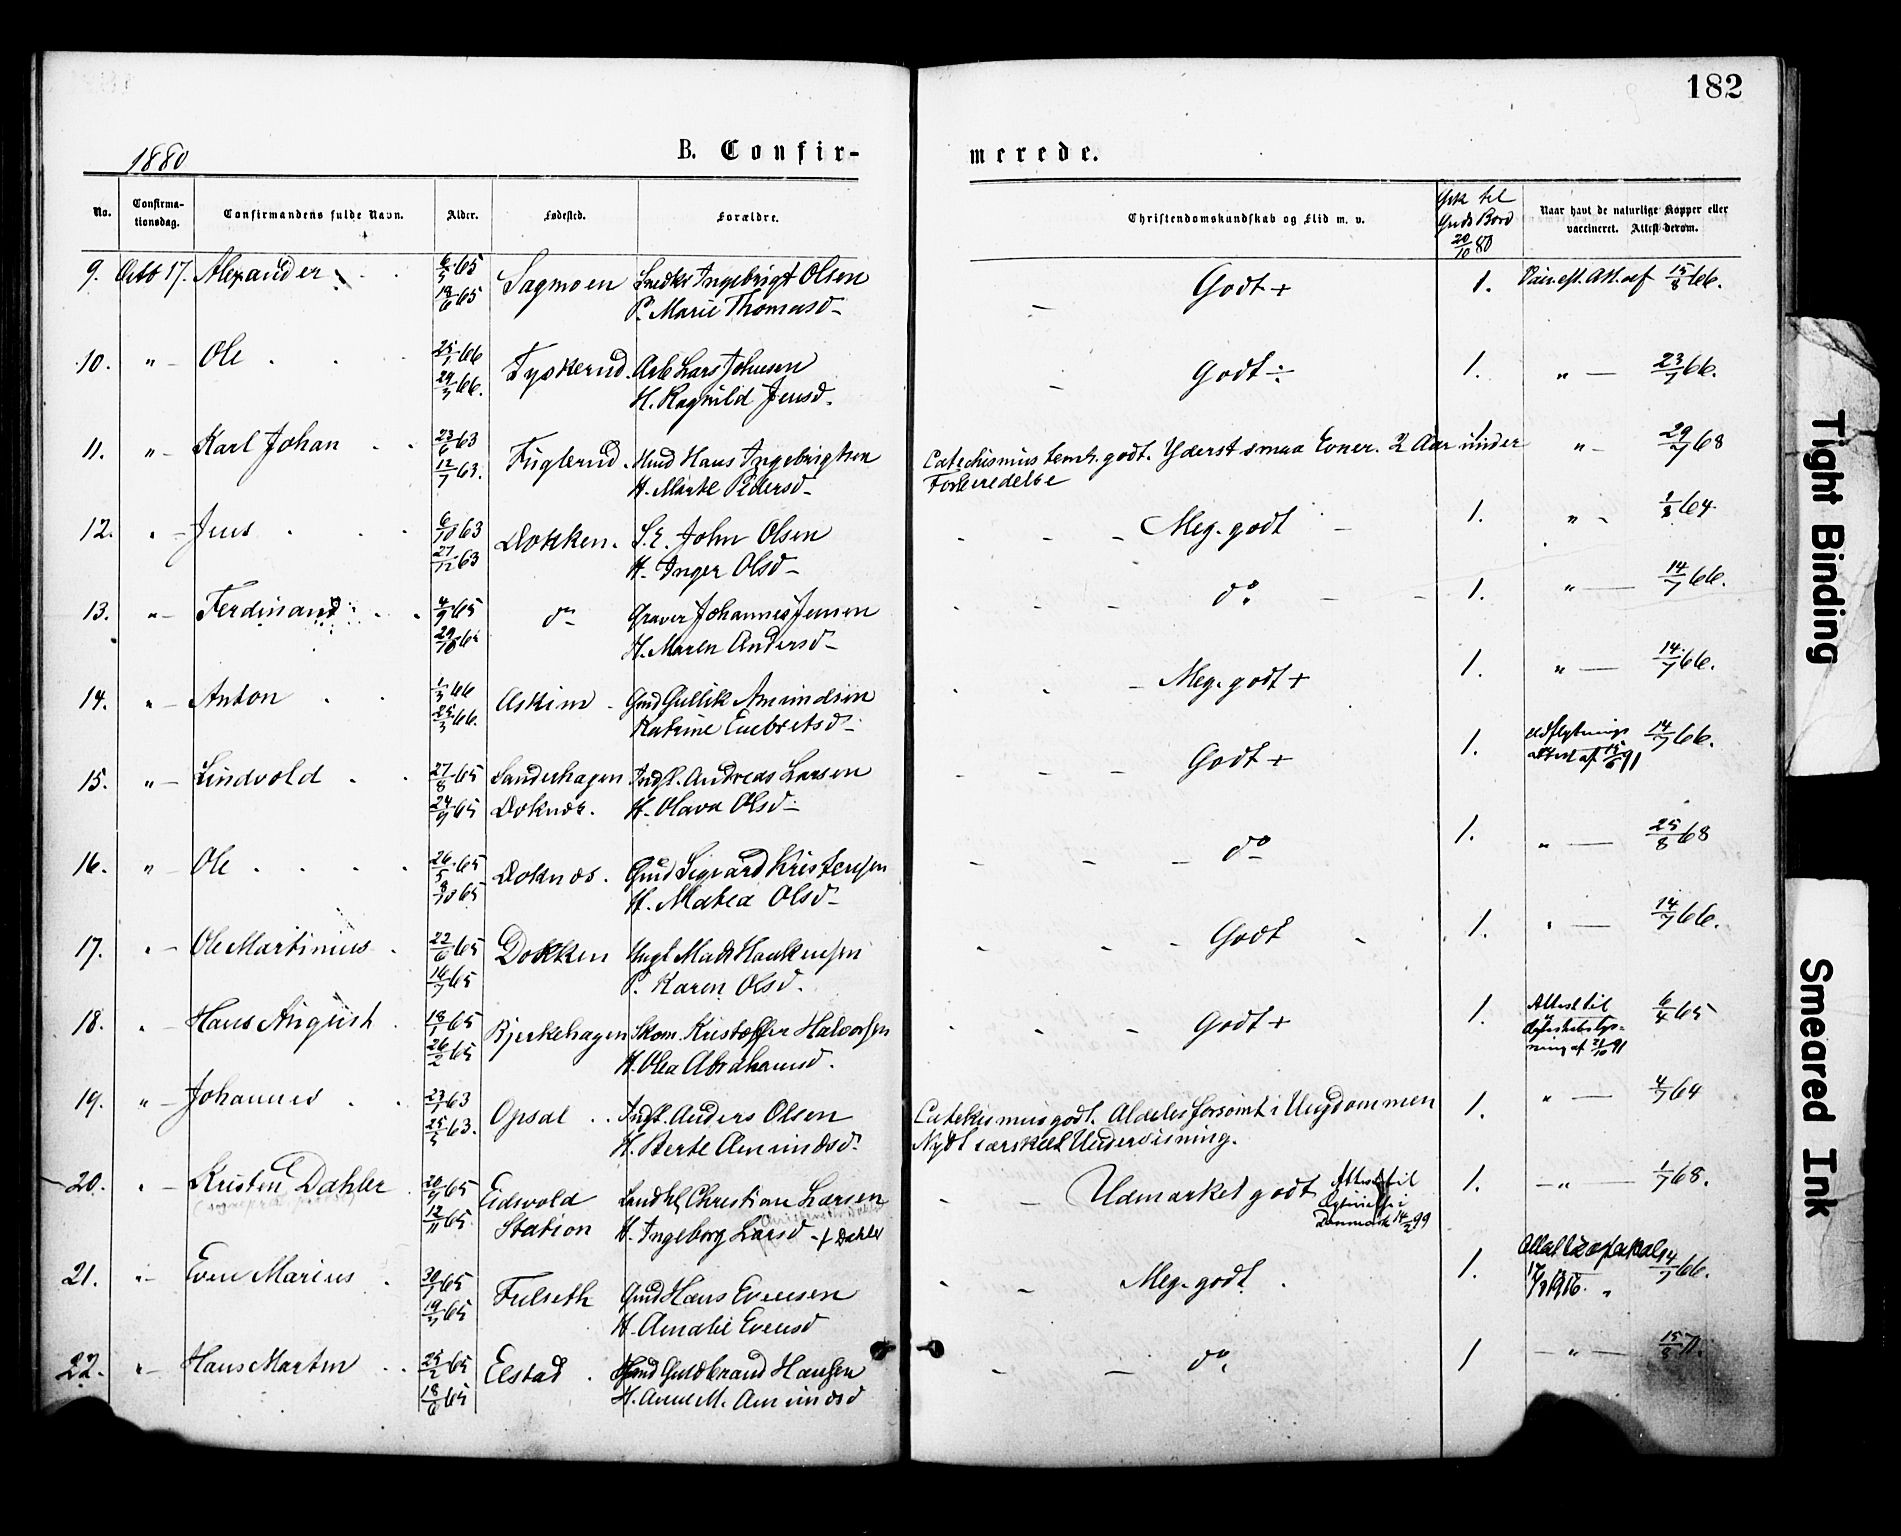 182
1880
B. Confir-
merede.
No.
Confirma-
tionsdag.
Confirmandens fulde Navn.
Alder.
Fødested.
Forældre.
Christendomskundskab og Flid m. v.
Gik til
Guds Bord
20/10 80
Naar havt de naturlige Kopper eller
vaccineret. Attest derom.
9. Octb 17. Alexander 6/5 65 Sagmoen Snedker Ingebrigt Olsen Godt + 1. Vacc. eft. Att. af 15/8 66.
18/6 65 P. Marie Thomasd.
10. " Ole 25/1 66 Tyskerud. Arb. Lars Johnsen Godt ÷ 1. " 23/7 66.
29/3 66. H. Ragnild Jensd.
11. " Karl Johan 23/6 63 Fuglerud. Hmd Hans Ingebrigtsen Catechismus temt. godt. Yderst smaa Evner. 2 Aar under 1. " 29/7 68
12/7 63. H. Marte Pedersd. Forberedelse
12. " Jens 6/10 63 Dokken. S.E. John Olsen Meg. godt 1. " 1/8 64
27/12 63 H. Inger Olsd.
13. " Ferdinand 4/9 65 do Graver Johannes Jensen do. 1. " 14/7 66.
29/10 65 H. Maren Andersd.
14. " Anton 1/3 66 Askim Gmd Gullik Amundsen Meg. godt + 1. " 14/7 66.
25/3 66. Katrine Embretsd.
15. " Lindvold 27/8 65 Sanderhagen Indst. Andreas Larsen Godt + 1. Udflytnings 14/7 66.
24/9 65 Doknes. H. Olava Olsd. attest af 15/6 91
16. " Ole 26/5 65 Doknes. Gmd Sigvard Kristensen do 1. " 25/8 68
8/10 65 H. Matea Olsd.
17. " Ole Martinius 22/6 65 Dokken Ungk. Mads Haakensen Godt 1. " 14/7 66.
16/7 65 P. Karen Olsd.
18. " Hans August 18/1 65 Bjerkehagen Skom. Kristoffer Halvorsen Godt + 1. Attest til 6/4 65
26/2 65 H. Olea Abrahamsd. 
ning af 21/10 91
19. " Johannes 23/1 63 Opsal Indst. Anders Olsen Catekismus godt. Aldeles forsømt i Ungdommen 1. " 4/7 64
25/3 63. H. Berte Amundsd. Nydt særskilt Undervisning.
20. " Kristen Dahler 20/9 65 Eidsvold Landhl. Christian Larsen Udmærket godt Attest til 1. " 1/7 68.
12/11 65. Station H. Ingeborg Larsd. f. Dahler Danmark 14/2 99
21. " Even Marius 30/7 65 Fulseth Gmd Hans Evensen Meg. godt. 1. 14/7 66.
19/7 65 H. Amalie Evensd
22. " Hans Martin 25/2 65 Elstad Gmd Guldbrand Hansen do. 1 " 15/8 71.
18/6 65 H. Anne M. Amundsd
Tight Binding
Smeared Ink